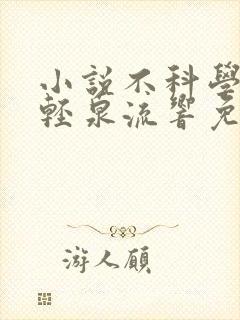 小說不科學
輕泉流響免
游人顧